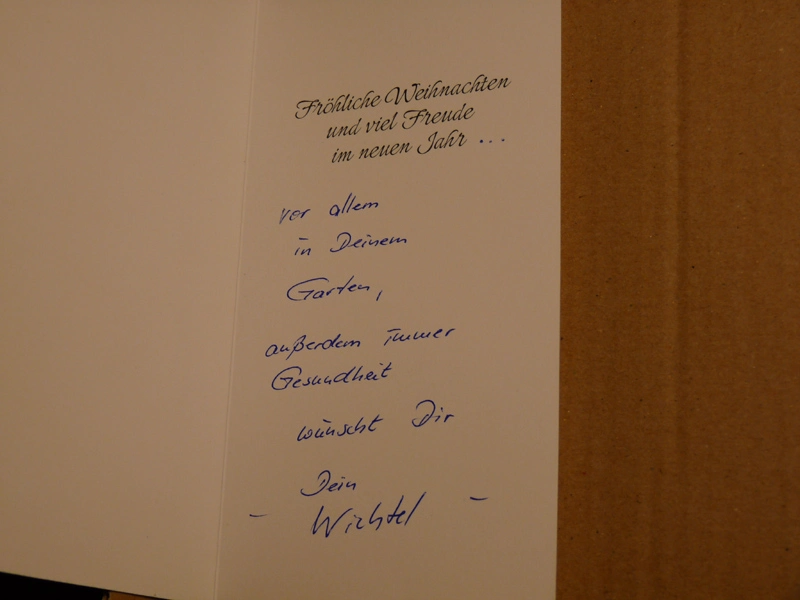 Fröhliche Weihnachten
und viel Freude
im neuen Jahr ...
vor allem
in Deinem
Garten,
außerdem immer
Gesundheit
wünscht Dir
Dein
- Wichtel -